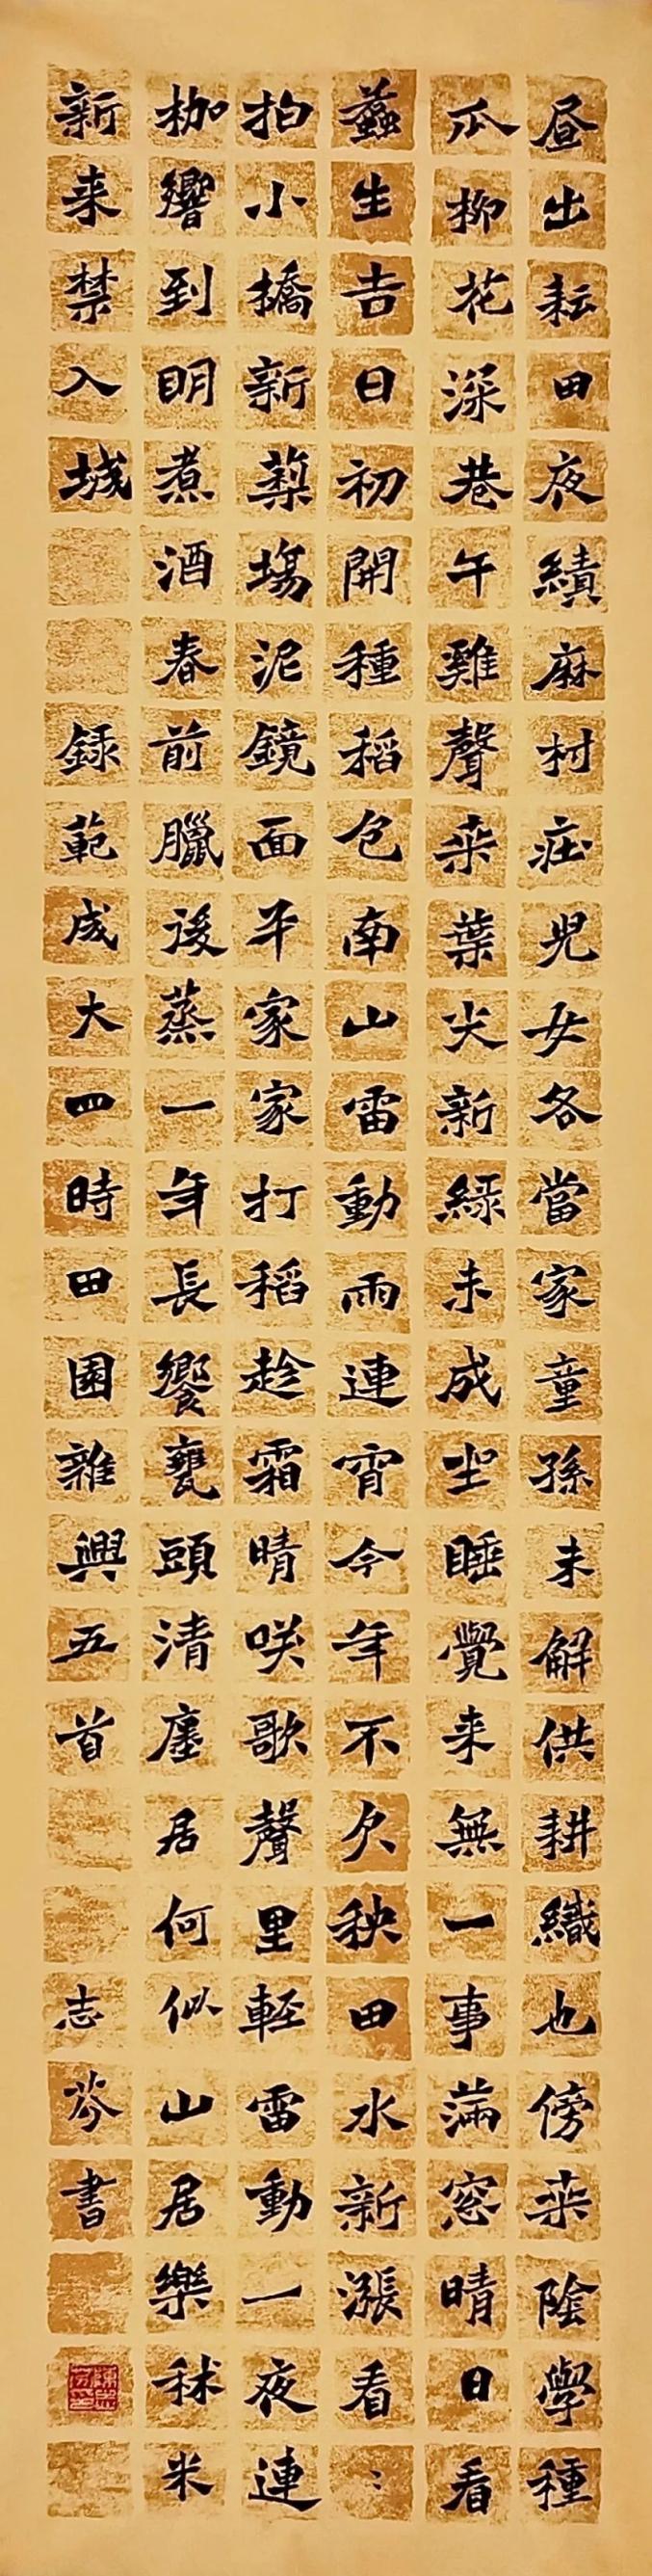 昼出耘田夜績麻村庄児女各當家童孫未解供耕織也傍桒陰學種
瓜柳花深巷午雞聲桒葉尖新緑未成坐睡覺来無一事滿窓晴日看
蠶生吉日初開種稻包南山雷動雨連宵今年不欠秧田水新漲看〻
拍小橋新築塲泥鏡面平家家打稻趁霜晴咲歌聲里軽雷動一夜連
枷響到明煮酒春前臘後蒸一年長饗甕頭清廛居何似山居樂秫米
新来禁入城 録範成大四時田園雜興五首 志芬書